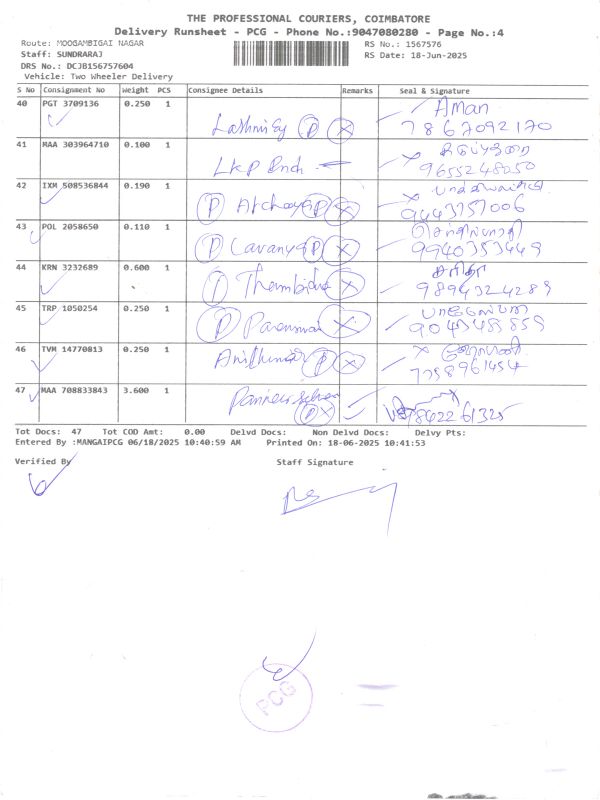 THE PROFESSIONAL COURIERS, COIMBATORE
Delivery Runsheet - PCG - Phone No.:9047080280 - Page No.:4
Route: MOOGAMBIGAI NAGAR RS No.: 1567576
Staff: SUNDRARAJ RS Date: 18-Jun-2025
DRS No.: DCJB156757604
Vehicle: Two Wheeler Delivery
S No Consignment No Weight PCS Consignee Details Remarks Seal & Signature
40 PGT 3709136 0.250 1 AMAN
P X 7867092170
41 MAA 303964710 0.100 1
LKP X 9655248050
42 IXM 508536844 0.190 1
P P X 9443757006
43 POL 2058650 0.110 1
P Lavanya P X 9940353449
44 KRN 3232689 0.600 1
P X 9894324289
45 TRP 1050254 0.250 1
P X
46 TVM 14770813 0.250 1
Anilkumar P X 7758961454
47 MAA 708833843 3.600 1 Panneerselvam
P X 7842261325
Tot Docs: 47 Tot COD Amt: 0.00 Delvd Docs: Non Delvd Docs: Delvy Pts:
Entered By :MANGAIPCG 06/18/2025 10:40:59 AM Printed On: 18-06-2025 10:41:53
Verified By Staff Signature
PCG